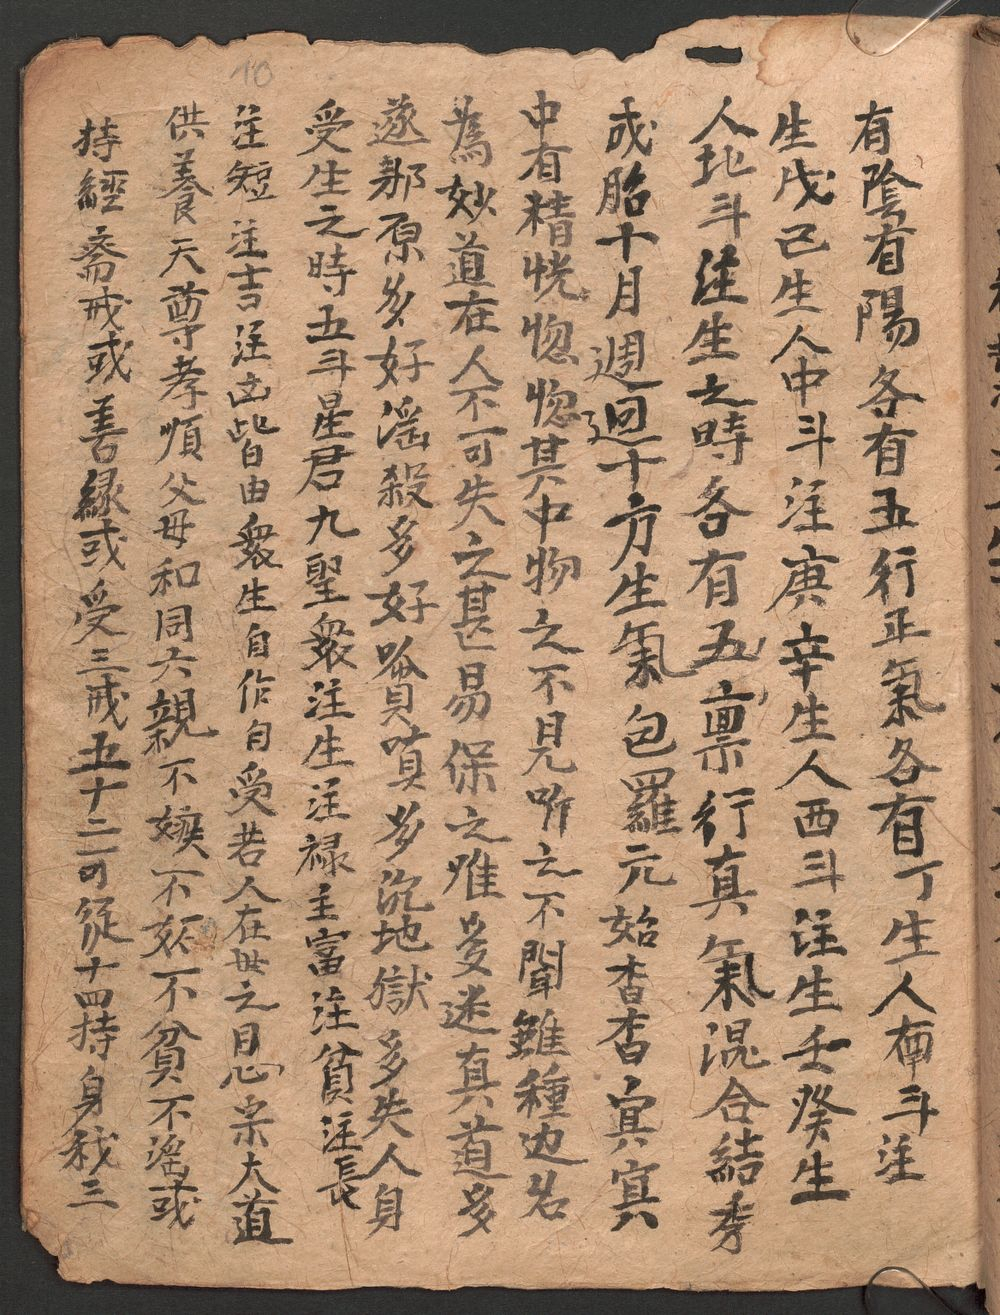 10
有陰有陽各有五行正氣各有丁生人南斗注
生戊己生人中斗注庚辛生人西斗注生壬癸生
人北斗注生之時各有五禀行真氣混合結秀
成胎十月週迴十方生氣包羅元始杳杳寘寘
中有精恍惚惚其中物之不見听之不聞雖種边名
為妙道在人不可失之甚易保之唯受迷真道多
逐邪原多好滛殺多好贪嗔多沉地獄多失人身
受生之時五斗星君九聖衆注生注禄主富注貧注長
注短注吉注凶皆由衆生自作自受若人在世之日心宗大道
供養天尊孝順父母和同六親不嫉不妬不貧不滛或
持經斋戒或善緣或受三戒五十二可從十四持身我三